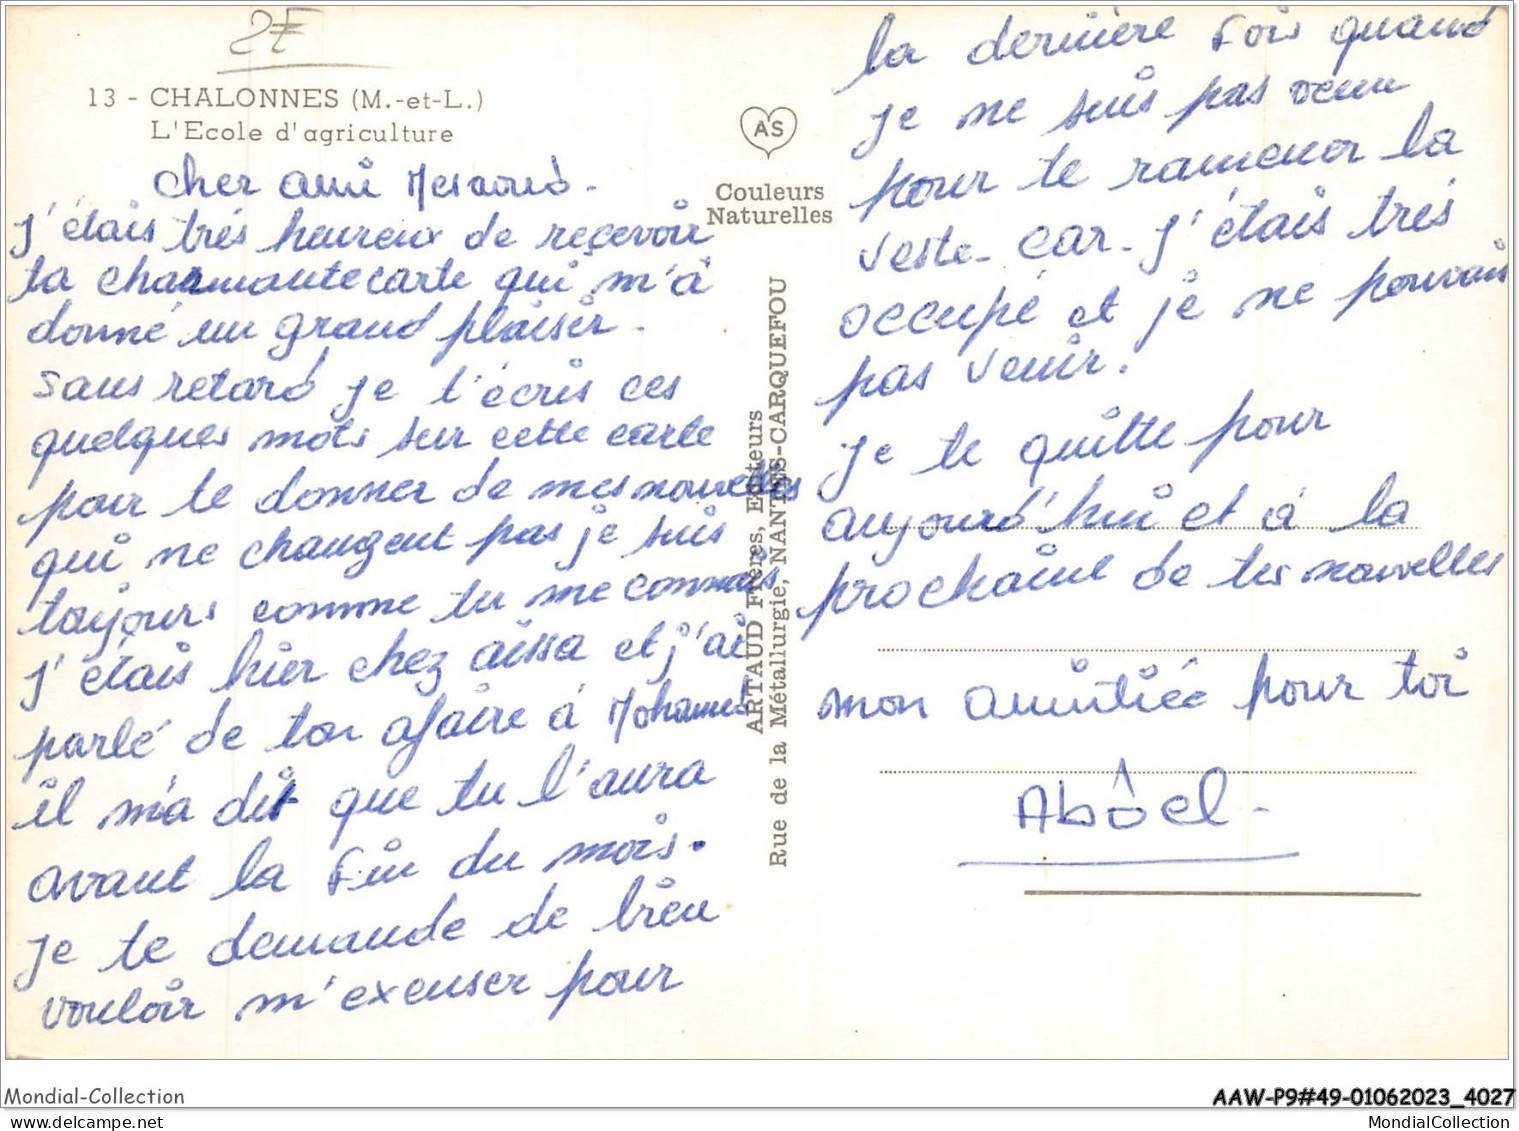 2F
13 - CHALONNES (M.-et-L.)
L'Ecole d'agriculture
cher ami Messaoud -
J'étais trés heureux de reçevoir
ta charmante carte qui m'à
donné un grand plaisir -
sans retard je t'écris ces
quelques mots sur cette carte
pour te donner de mes nouvelles
qui ne changent pas je suis
toujours comme tu me connais
j'étais hier chez aissa et j'ai
parlé de ton afaire à Mohamed
il m'a dit que tu l'aura
avant la fin du mois.
je te demande de bien
vouloir m'excuser pour
AS
Couleurs
Naturelles
ARTAUD Frères, Editeurs
Rue de la Métallurgie, NANTES-CARQUEFOU
la dernière fois quand
je ne suis pas venu
pour te ramener la
veste - car - j'étais trés
occupé et je ne pouvais
pas venir.
je te quitte pour
aujourd'hui et à la
prochaine de tes nouvelles
mon amitiée pour toi
Abdel -
Mondial-Collection
AAW-P9#49-01062023_4027
MondialCollection
MondialCollection